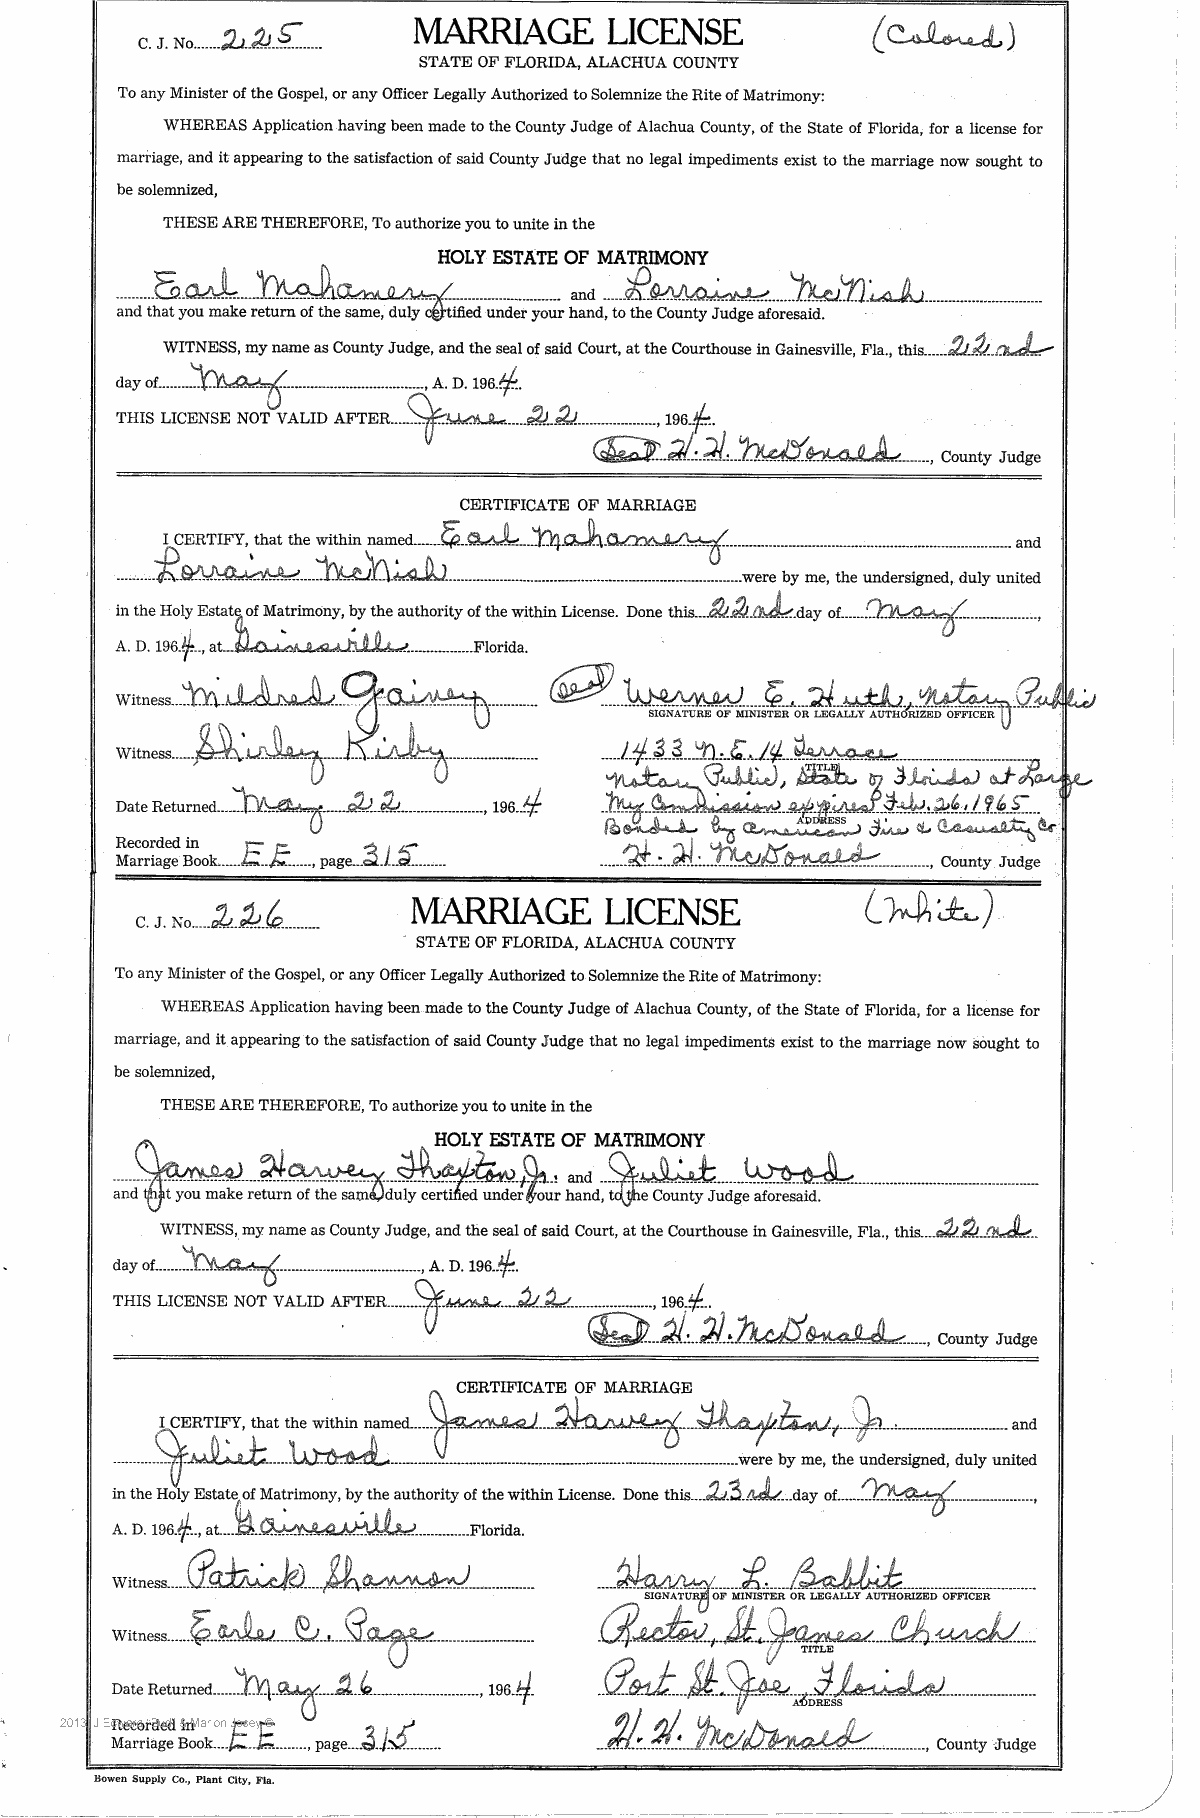 C. J. No. 225 MARRIAGE LICENSE (Colored)
STATE OF FLORIDA, ALACHUA COUNTY
To any Minister of the Gospel, or any Officer Legally Authorized to Solemnize the Rite of Matrimony:
WHEREAS Application having been made to the County Judge of Alachua County, of the State of Florida, for a license for
marriage, and it appearing to the satisfaction of said County Judge that no legal impediments exist to the marriage now sought to
be solemnized,
THESE ARE THEREFORE, To authorize you to unite in the
HOLY ESTATE OF MATRIMONY
Earl Mahamery and Lorraine McNish
and that you make return of the same, duly certified under your hand, to the County Judge aforesaid.
WITNESS, my name as County Judge, and the seal of said Court, at the Courthouse in Gainesville, Fla., this 22nd
day of May, A. D. 1964.
THIS LICENSE NOT VALID AFTER June 22, 1964.
(Seal) H. H. McDonald, County Judge
CERTIFICATE OF MARRIAGE
I CERTIFY, that the within named Earl Mahamery and
Lorraine McNish were by me, the undersigned, duly united
in the Holy Estate of Matrimony, by the authority of the within License. Done this 22nd day of May,
A. D. 1964, at Gainesville Florida.
Witness Mildred Gainey (Seal) Werner E. Huth, Notary Public
SIGNATURE OF MINISTER OR LEGALLY AUTHORIZED OFFICER
Witness Shirley Kirby 1433 N.E. 14 Terrace
TITLE
Notary Public, State of Florida at Large
Date Returned May 22, 1964 My Commission expires Feb. 26, 1965
ADDRESS
Bonded by American Fire & Casualty Co
Recorded in
Marriage Book EE, page 315 H. H. McDonald, County Judge
C. J. No. 226 MARRIAGE LICENSE (White)
STATE OF FLORIDA, ALACHUA COUNTY
To any Minister of the Gospel, or any Officer Legally Authorized to Solemnize the Rite of Matrimony:
WHEREAS Application having been made to the County Judge of Alachua County, of the State of Florida, for a license for
marriage, and it appearing to the satisfaction of said County Judge that no legal impediments exist to the marriage now sought to
be solemnized,
THESE ARE THEREFORE, To authorize you to unite in the
HOLY ESTATE OF MATRIMONY
James Harvey Thaxton, Jr. and Juliet Wood
and that you make return of the same, duly certified under your hand, to the County Judge aforesaid.
WITNESS, my name as County Judge, and the seal of said Court, at the Courthouse in Gainesville, Fla., this 22nd
day of May, A. D. 1964.
THIS LICENSE NOT VALID AFTER June 22, 1964.
(Seal) H. H. McDonald, County Judge
CERTIFICATE OF MARRIAGE
I CERTIFY, that the within named James Harvey Thaxton, Jr. and
Juliet Wood were by me, the undersigned, duly united
in the Holy Estate of Matrimony, by the authority of the within License. Done this 23rd day of May,
A. D. 1964, at Gainesville Florida.
Witness Patrick Shannon Harry L. Babbit
SIGNATURE OF MINISTER OR LEGALLY AUTHORIZED OFFICER
Witness Earle C. Page Rector, St. James Church
TITLE
Date Returned May 26, 1964 Port St. Joe, Florida
ADDRESS
2013
Recorded in
Marriage Book EE, page 315 H. H. McDonald, County Judge
Bowen Supply Co., Plant City, Fla.